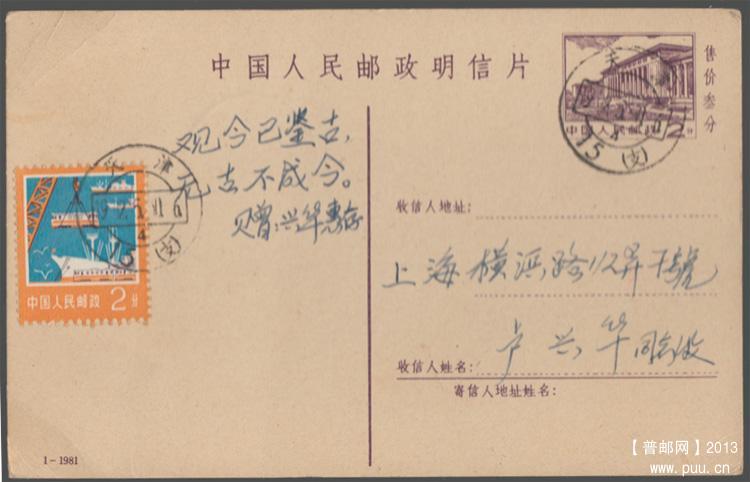 中国人民邮政明信片
售价叁分
中国人民邮政 2分
天津
15(支)
观今已鉴古，
无古不成今。
贝赠：兴华惠存
津
15(支)
中国人民邮政 2分
收信人地址：
上海横浜路
收信人姓名：
卢兴华同志收
寄信人地址姓名：
1-1981
【普邮网】2013
www.puu.cn